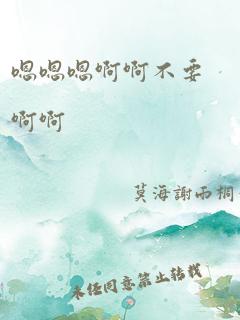 嗯嗯嗯啊啊不要
啊啊
莫海謝雨桐
未经同意禁止转载